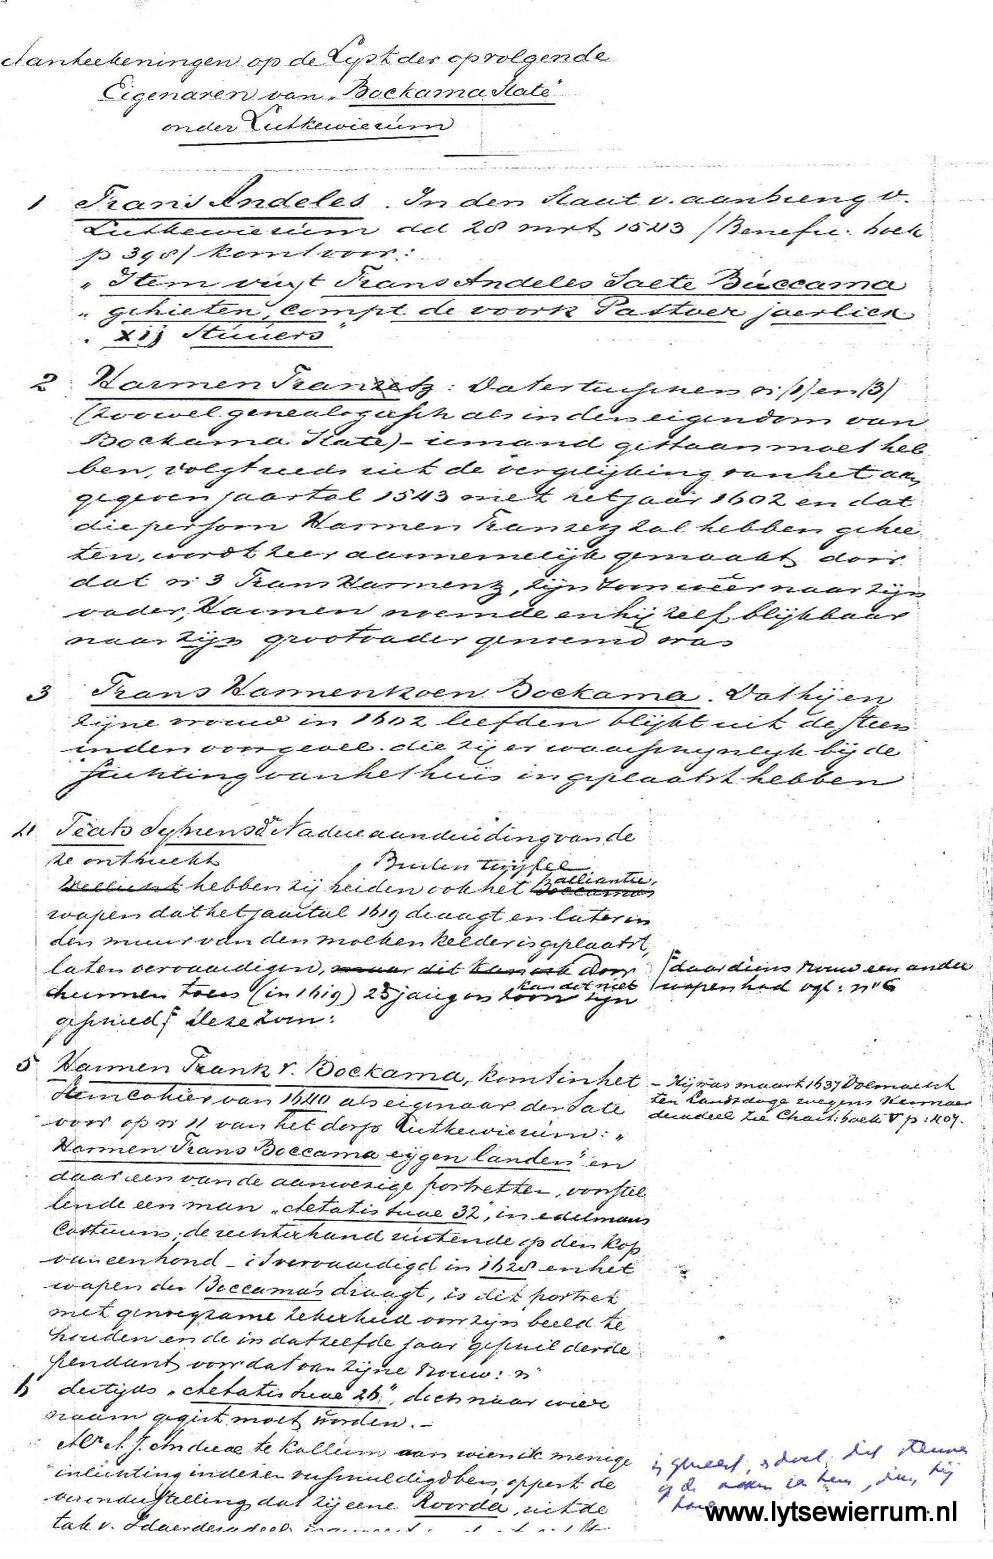 Aanteekeningen op de Lyst der opvolgende
Eigenaren van "Bockama State"
onder Lutkewierum
1 Frans Andeles. In den Staat v. aanbreng v.
Lutkewierum dd 28 mrt 1543 /Benefic. boek
p 398/ komt voor:
"Item vuyt Frans Andeles Saete Buccama
" gehieten, compt de voork Pastoer jaerlicx
" xij Stuuers"
2 Harmen Fransz: Dat er tusschen nr /1/ en /3/
(zoowel genealogisch als in den eigendom van
Bockama State) - iemand gestaan moet heb
ben, volgt reeds uit de vergelijking van het aan
gegeven jaartal 1543 met het jaar 1602 en dat
die persoon Harmen Fransz zal hebben gehee
ten, wordt zeer aannemelijk gemaakt door
dat nr 3 Frans Harmensz, zijn zoon weer naar zijn
vader, Harmen noemde en hij zelf blijkbaar
naar zijn grootvader genoemd was
3 Frans Harmenkoen Bockama. Dat hij en
zijne vrouw in 1602 leefden blijkt uit de steen
in den voorgevel die zij er waarschynlyk bij de
stichting van het huis in geplaatst hebben
4 Teats Sytzensdr Nadere aanduiding van de
ze ontbreekt Buiten twijfel
Wellicht hebben zij beiden ook het Boccamas alliantie
wapen dat het jaartal 1619 draagt en later in
den muur van den molken kelder is geplaatst,
laten vervaardigen, maar dit kan ook door
hunnen toen (in 1619) 23 jarigen zoon kan dit niet zijn
geschied, Deze zoon:
daar diens vrouw een ander
wapen had vgl: nr 6
5 Harmen Frank v. Bockama, komt in het
Stemcohier van 1640 als eigenaar der Sate
voor op nr 11 van het dorp Lutkewierum: "
Harmen Frans Boccama eygen landen" en
daar een van de aanwezige portretten, voorstel
lende een man "Aetatis suae 32", in edelmans
costuum, de rechterhand rustende op den kop
van een hond - is vervaardigd in 1628 en het
wapen der Boccama's draagt, is dit portret
met genoegzame zekerheid voor zijn beeld te
houden en de in datzelfde jaar geschilderde
pendant voor dat van zijne vrouw: nr
- Hij was maart 1637 Volmacht
ten Landsdage wegens Hennaar
deradeel zie Chart: boek V p: 407.
6 destijds "Aetatis suae 26", doch naar wier
naam gegist moet worden. -
Mr A. J. Andreae te Kollum aan wien ik menige
inlichting in dezen verschuldigd ben, oppert de
veronderstelling, dat zij eene Roorda, uit de
tak v. Idaarderadeel
www.lytsewierrum.nl